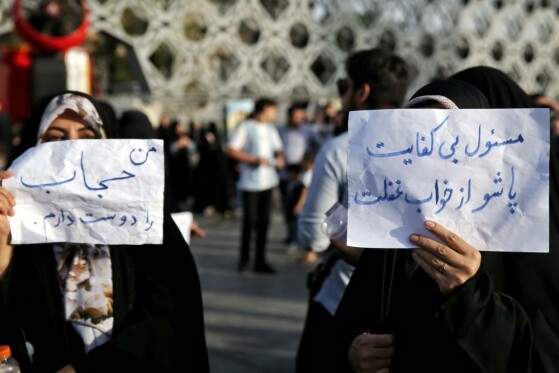 من
حجاب
را دوست دارم.
مسئول بی کفایت
پاشو از خواب غفلت